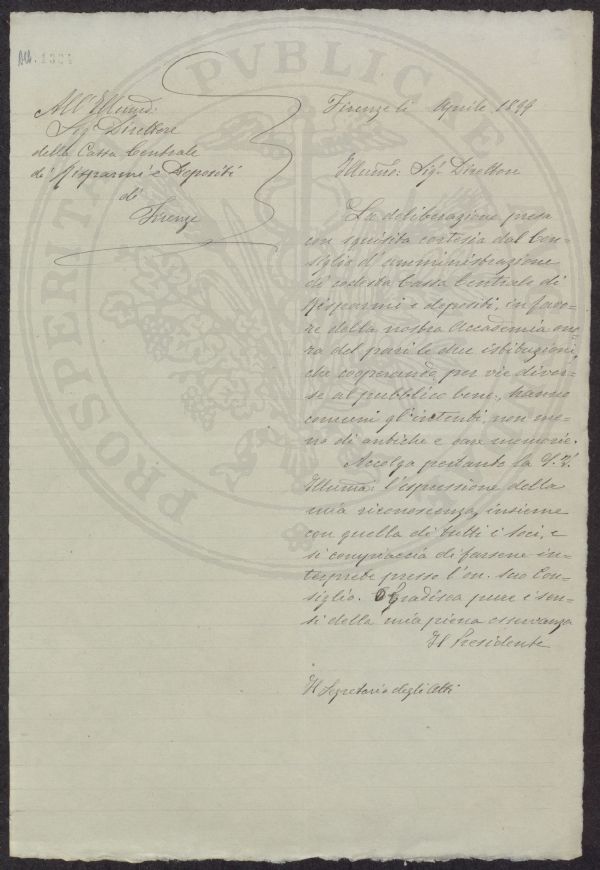 All' Illmo.
Sigr. Direttore
della Cassa Centrale
di Risparmi e Depositi
di
Firenze
Firenze li Aprile 1899
Illmo: Sigr. Direttore
La deliberazione presa
con squisita cortesia dal Con-
siglio d'amministrazione
di codesta Cassa Centrale di
Risparmi e depositi, in favo-
re della nostra Accademia ono-
ra del pari le due istituzioni,
che cooperando per vie diver-
se al pubblico bene, hanno
comuni gl'intenti, non me-
no di antiche e care memorie.
Accolga pertanto la S. V.
Illma: l'espressione della
mia riconoscenza, insieme
con quella di tutti i Soci, e
si compiaccia di farsene in-
terprete presso l'on. suo Con-
siglio. Gradisca pure i sen-
si della mia piena osservanza
Il Presidente
Il Segretario degli Atti
PROSPERITA PVBLICAE